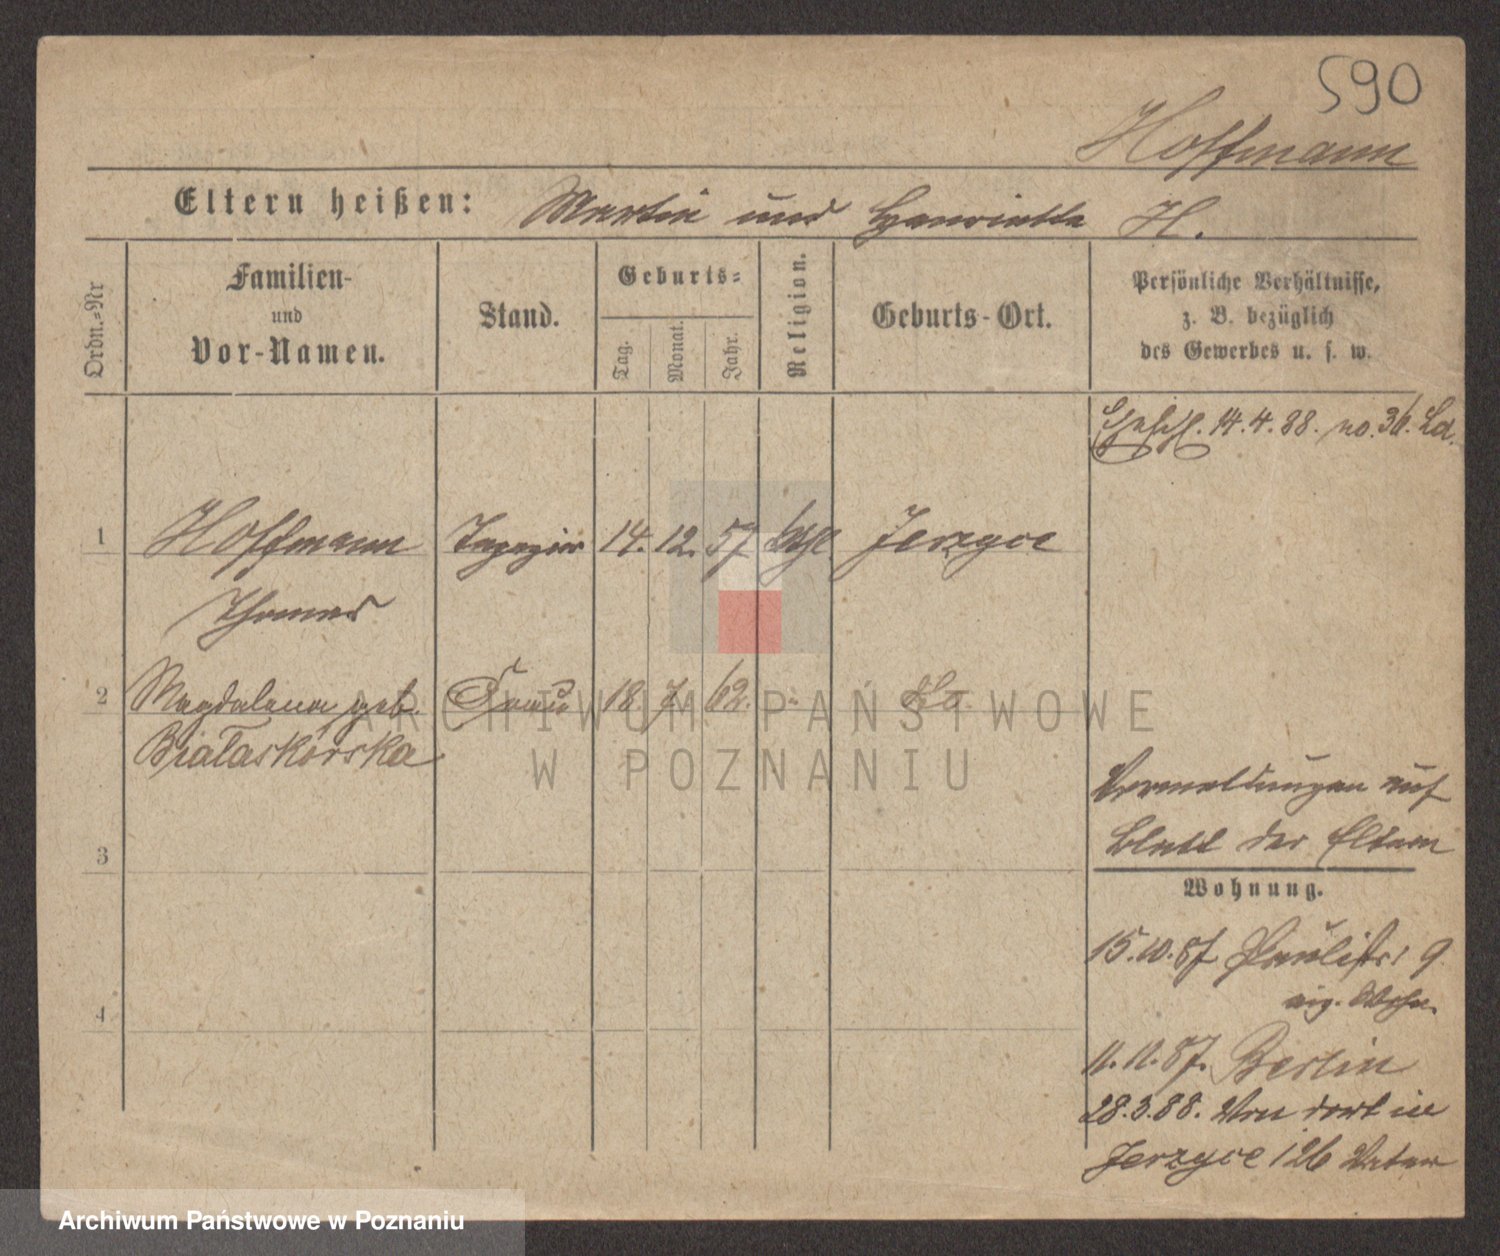 590
Hoffmann
Eltern heißen: Martin und Henriette H.
Ordn.-Nr
Familien- und Vor-Namen.
Stand.
Geburts-
Tag. Monat. Jahr.
Religion.
Geburts-Ort.
Persönliche Verhältnisse,
z. B. bezüglich
des Gewerbes u. s. w.
Ehesch. 14.4.88. no. 36. La.
1 Hoffmann Tapezier 14. 12. 57 kath Jerzyce
Thomas
2 Magdalena geb. Frau 18. 7. 62. " do.
Białaskórska
Vermeldungen auf
Blatt der Eltern
3
Wohnung.
15.10.87 Paulistr. 9
eig. Wohn.
4
11.11.87. Berlin
28.3.88. Von dort in
Jerzyce 126 Vater
ARCHIWUM PAŃSTWOWE
W POZNANIU
Archiwum Państwowe w Poznaniu